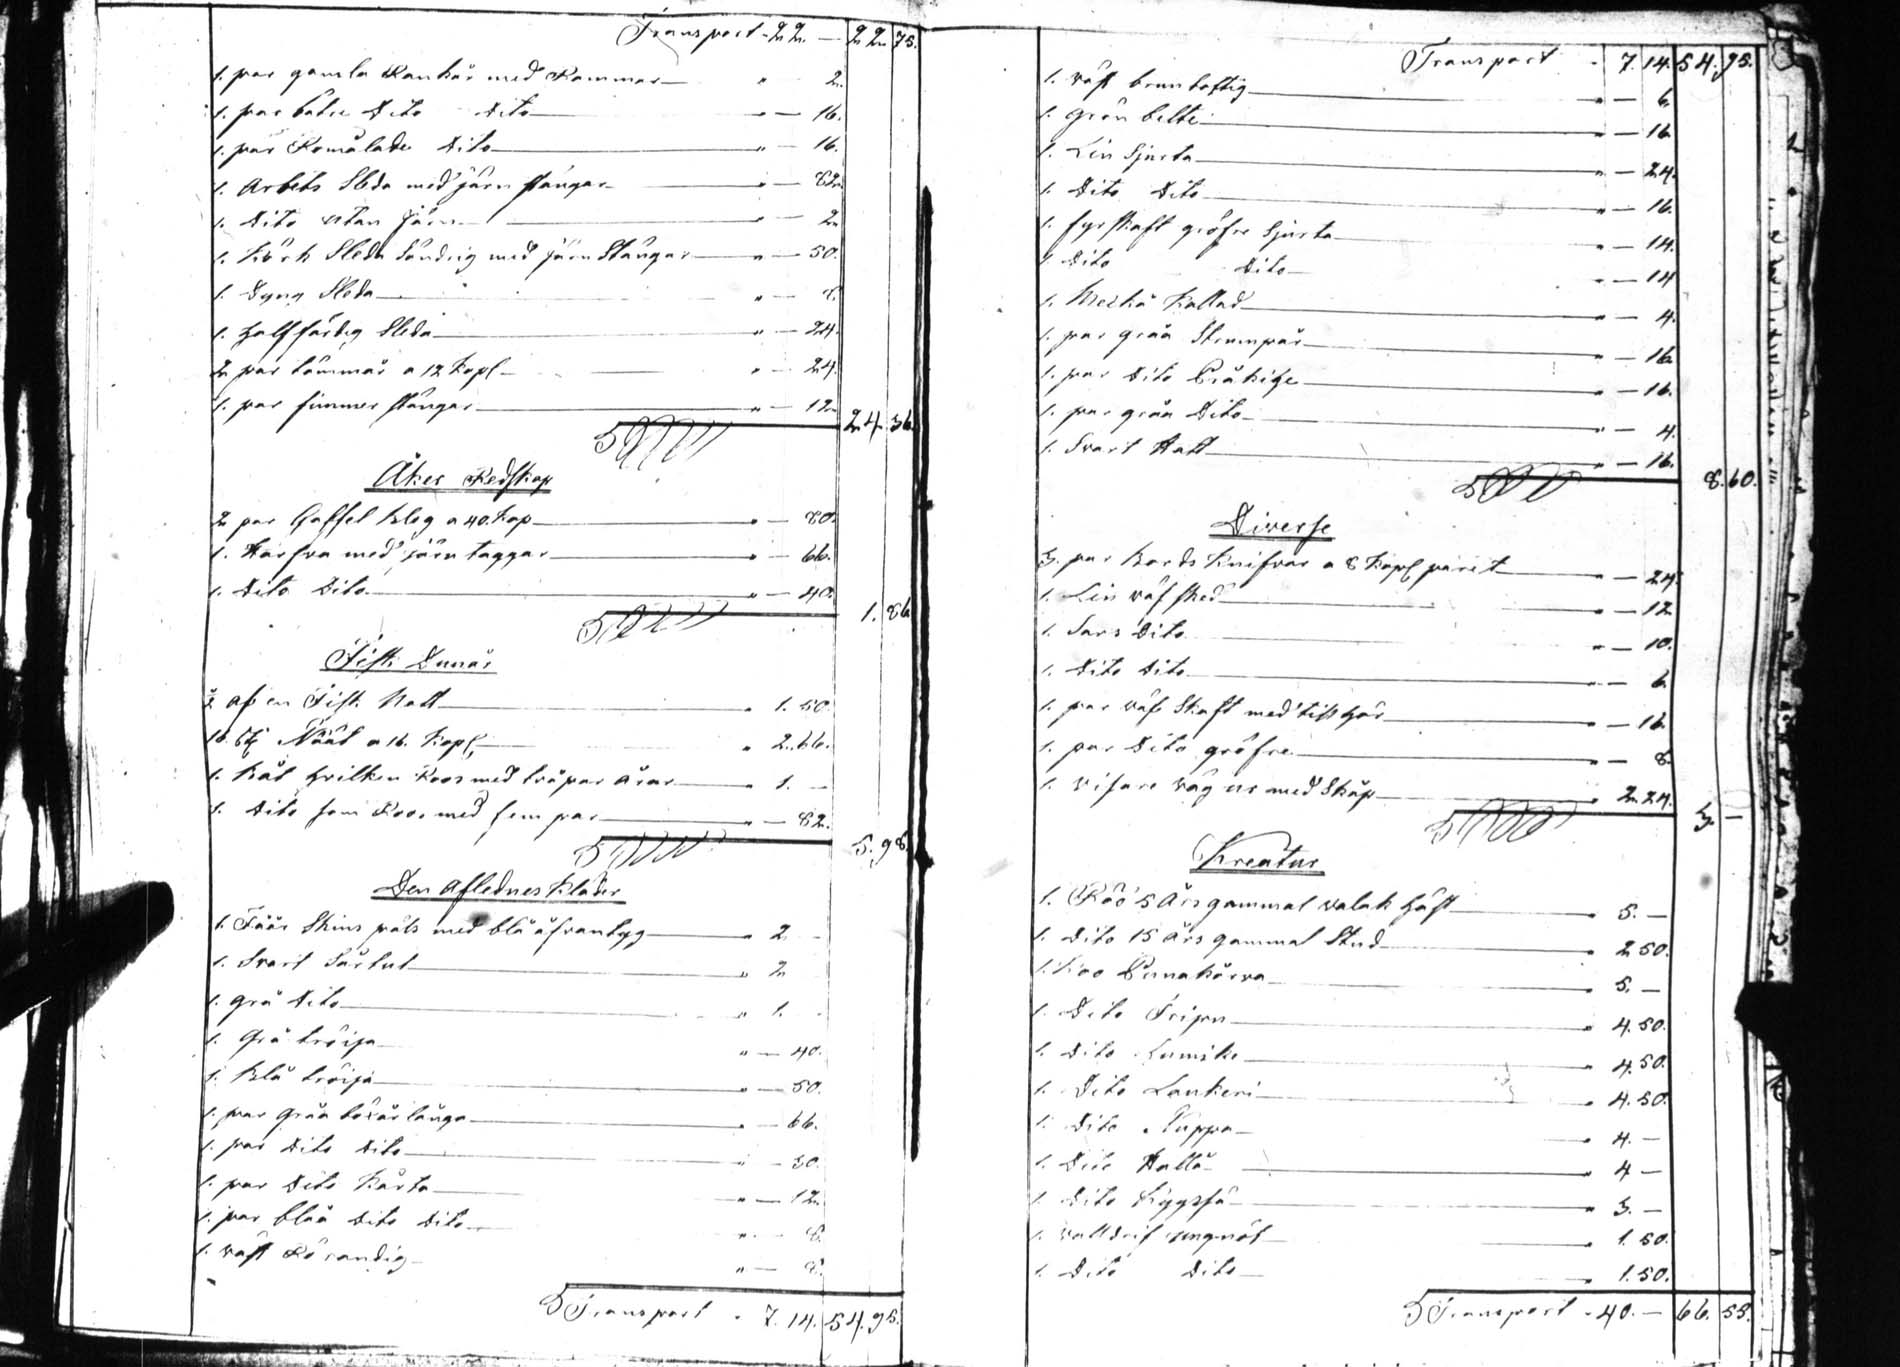 Transport - 22. — 22 75.
1. par gamla Rankar med Rammar — " — 2.
1. par bätre Dito Dito — " — 16.
1. par Romålade Dito — " — 16.
1. Arbets Släda med järn stänger — " — 82
1. Dito utan järn — " — 2
1. Körk Släda Söndrig med järn Stänger — " — 50.
1. Dyng Släda — " — 8.
1. halffärdig Släda — " — 24.
2 par tömmar a 12 Kopf — " — 24.
1. par fimmer stänger — " — 12
24 36.
Åker Redskap
2 par Gaffel Kleg a 40. Kop — " — 80.
1. Harfva med järn taggar — " — 66.
1. Dito Dito — " — 40.
1. 86
Fisk Dunär
½ af en Fisk Natt — " 1. 50.
16. St. Nääl a 16. Kopf. — " 2. 66.
1. Båt hvilken Roos med två par årar — " 1. —
1. Dito som Roos med fem par — " — 82.
5. 98.
Den Aflednes Kläder
1. Fåår Skins päls med blå åfvantyg — " 2 —
1. Svart Sürtut — " 2
1. grå Dito — " 1. —
1. Grå tröija — " — 40.
1. Blå tröija — " — 50.
1. par Gråa böxår långa — " — 66.
1. par Dito Dito — " — 30.
1. par Dito Karta — " — 12
1. par blåa Dito Dito — " — 8.
1. väst Rö randig — " — 8.
Transport - 7. 14. 54. 95.
Transport - 7. 14. 54. 95.
1. väst brunlastig — " — 6.
1. Grön bälte — " — 16
1. Lin Sjurta — " — 24.
1. Dito Dito — " — 16.
1. fyrskaft gröfre Sjurta — " — 14.
1 Dito Dito — " — 14
1. Kallad — " — 4.
1. par gråa Strumpär — " — 16
1. par Dito — " — 16.
1. par gråa Dito — " — 4.
1. Svart Hatt — " — 16.
8. 60.
Diverse
3. par Bords Knifvar a 8 Kopf paret — " — 24.
1. Lin väf sked — " — 12
1. Sars Dito — " — 10.
1. Dito Dito — " — 6.
1. par väf Skaft med — " — 16
1. par Dito gröfre — " — 8.
1. visare vägur med Skåp — " 2. 24.
3. —
Kreatur
1. Röö 5 Års gammal valak häst — " 5. —
1. Dito 15 Års gammal Stud — " 2 50.
1. Koo Punakörva — " 5. —
1. Dito Fripu — " 4. 50.
1. Dito Lumike — " 4. 50.
1. Dito Lankeri — " 4. 50.
1. Dito Kuppa — " 4. —
1. Dito Halla — " 4 —
1. Dito — " 3. —
1. ungnöt — " 1. 50.
1. Dito Dito — " 1. 50.
Transport - 40. — 66. 55.